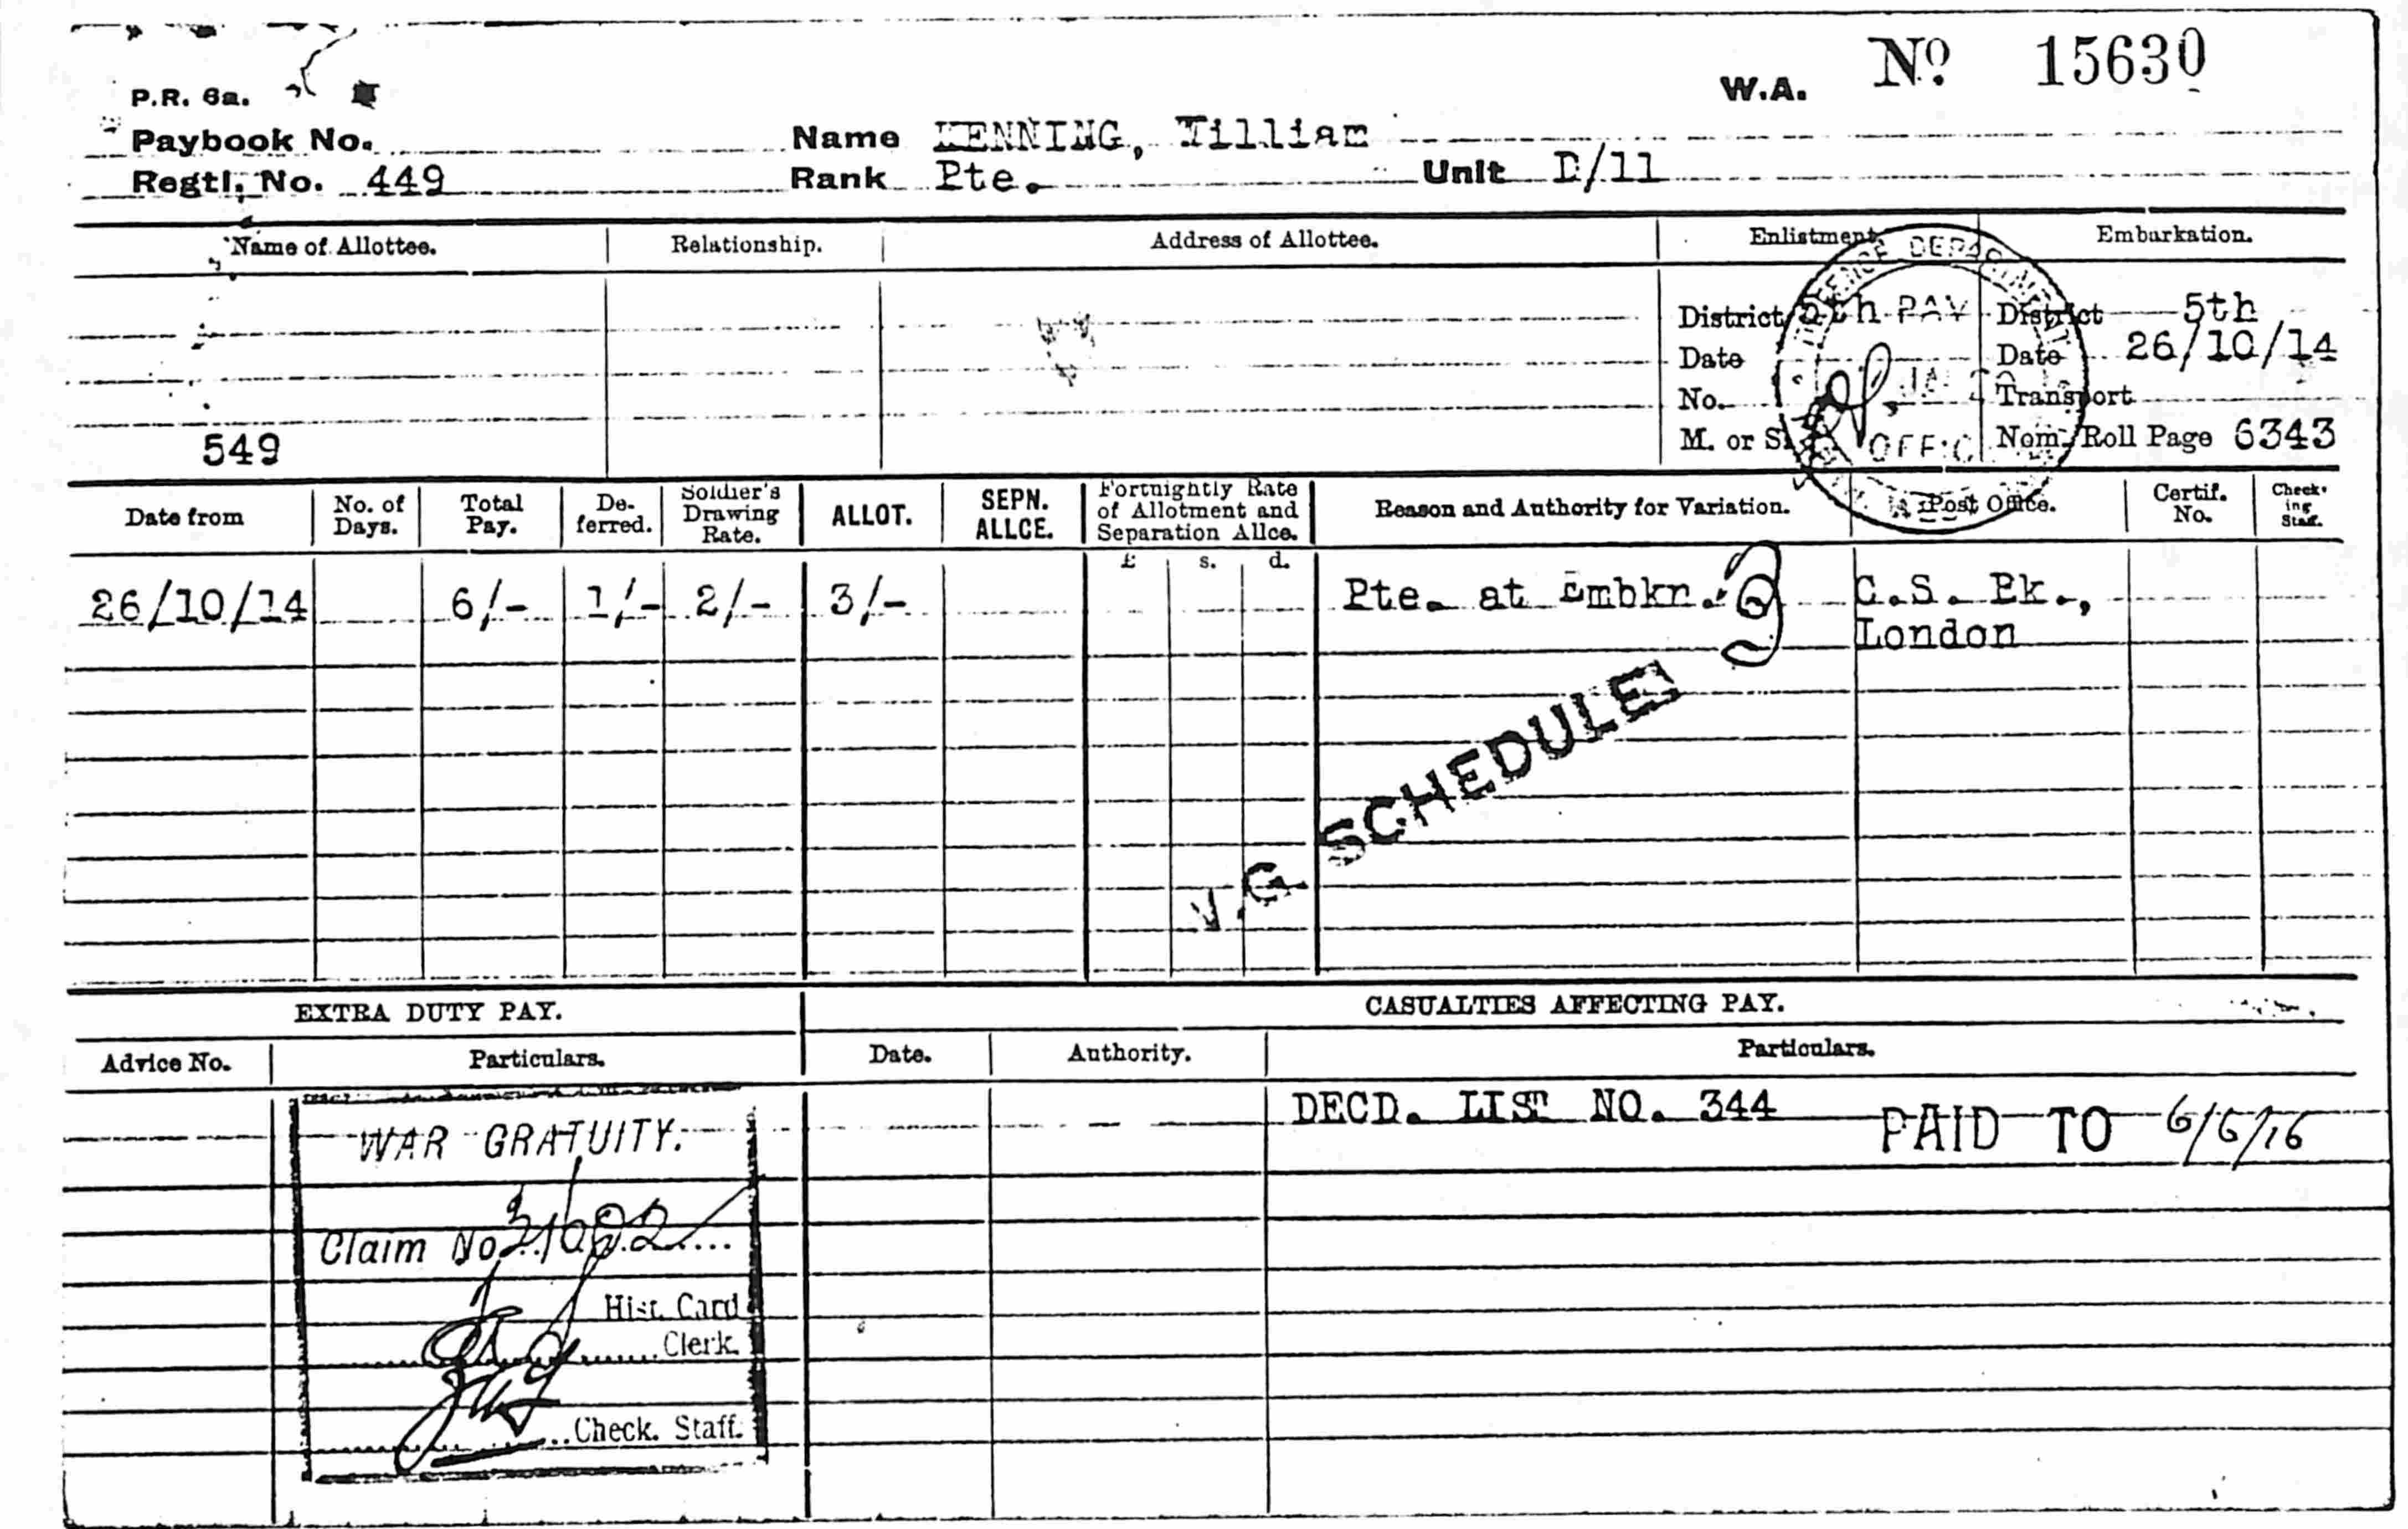 W.A. Nº 15630
P.R. 6a.
Paybook No. Name KENNING, William
Regtl. No. 449 Rank Pte. Unit D/11
Name of Allottee. Relationship. Address of Allottee. Enlistment. Embarkation.
DEFENCE DEPARTMENT
District 5th PAY District 5th
Date Date 26/10/14
No. Transport
549
M. or S. OFFIC Nom. Roll Page 6343
Date from No. of Days. Total Pay. De-ferred. Soldier's Drawing Rate. ALLOT. SEPN. ALLCE. Fortnightly Rate of Allotment and Separation Allce. Reason and Authority for Variation. Post Office. Certif. No. Check-ing Staff.
£ s. d.
26/10/14 6/- 1/- 2/- 3/- Pte. at Embkn. C.S. Bk.,
London
W.G. SCHEDULE
EXTRA DUTY PAY. CASUALTIES AFFECTING PAY.
Advice No. Particulars. Date. Authority. Particulars.
DECD. LIST NO. 344 PAID TO 6/6/16
WAR GRATUITY.
Claim No
Hist. Card
Clerk.
Check. Staff.